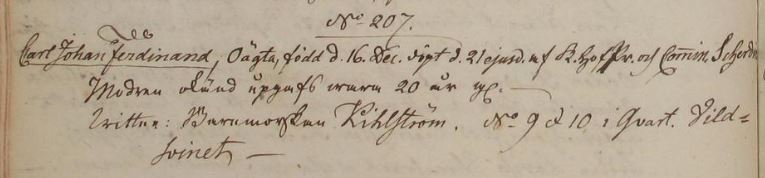 No 207.
Carl Johan Ferdinand, Oägta, född d. 16. Dec. döpt d. 21 ejusd. af K. Hof Pr. och Comin.
Modren okänd upgafs wara 20 år gl.
Vittne: Barnmorskan Kihlström. No 9 & 10 i Qvart. Vild=
svinet —